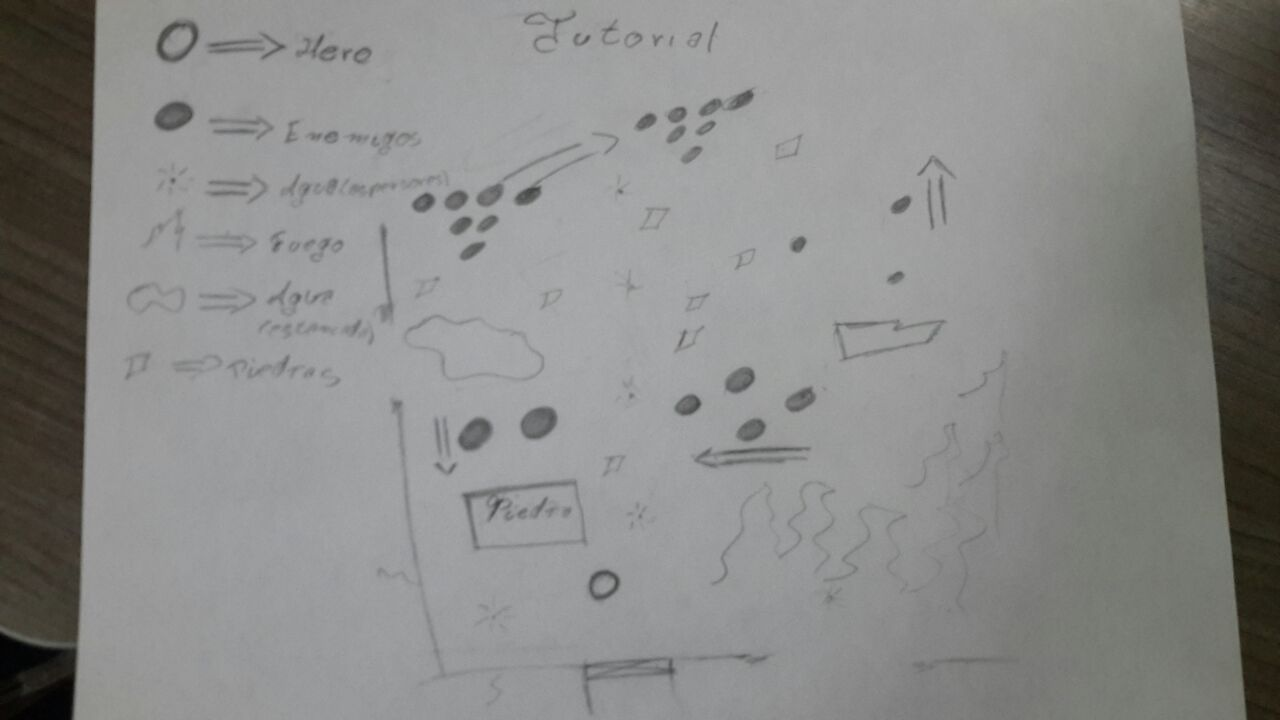 Tutorial
Hero
Enemigos
Agua (aspersores)
Fuego
Agua
(estancada)
Piedras
Piedra